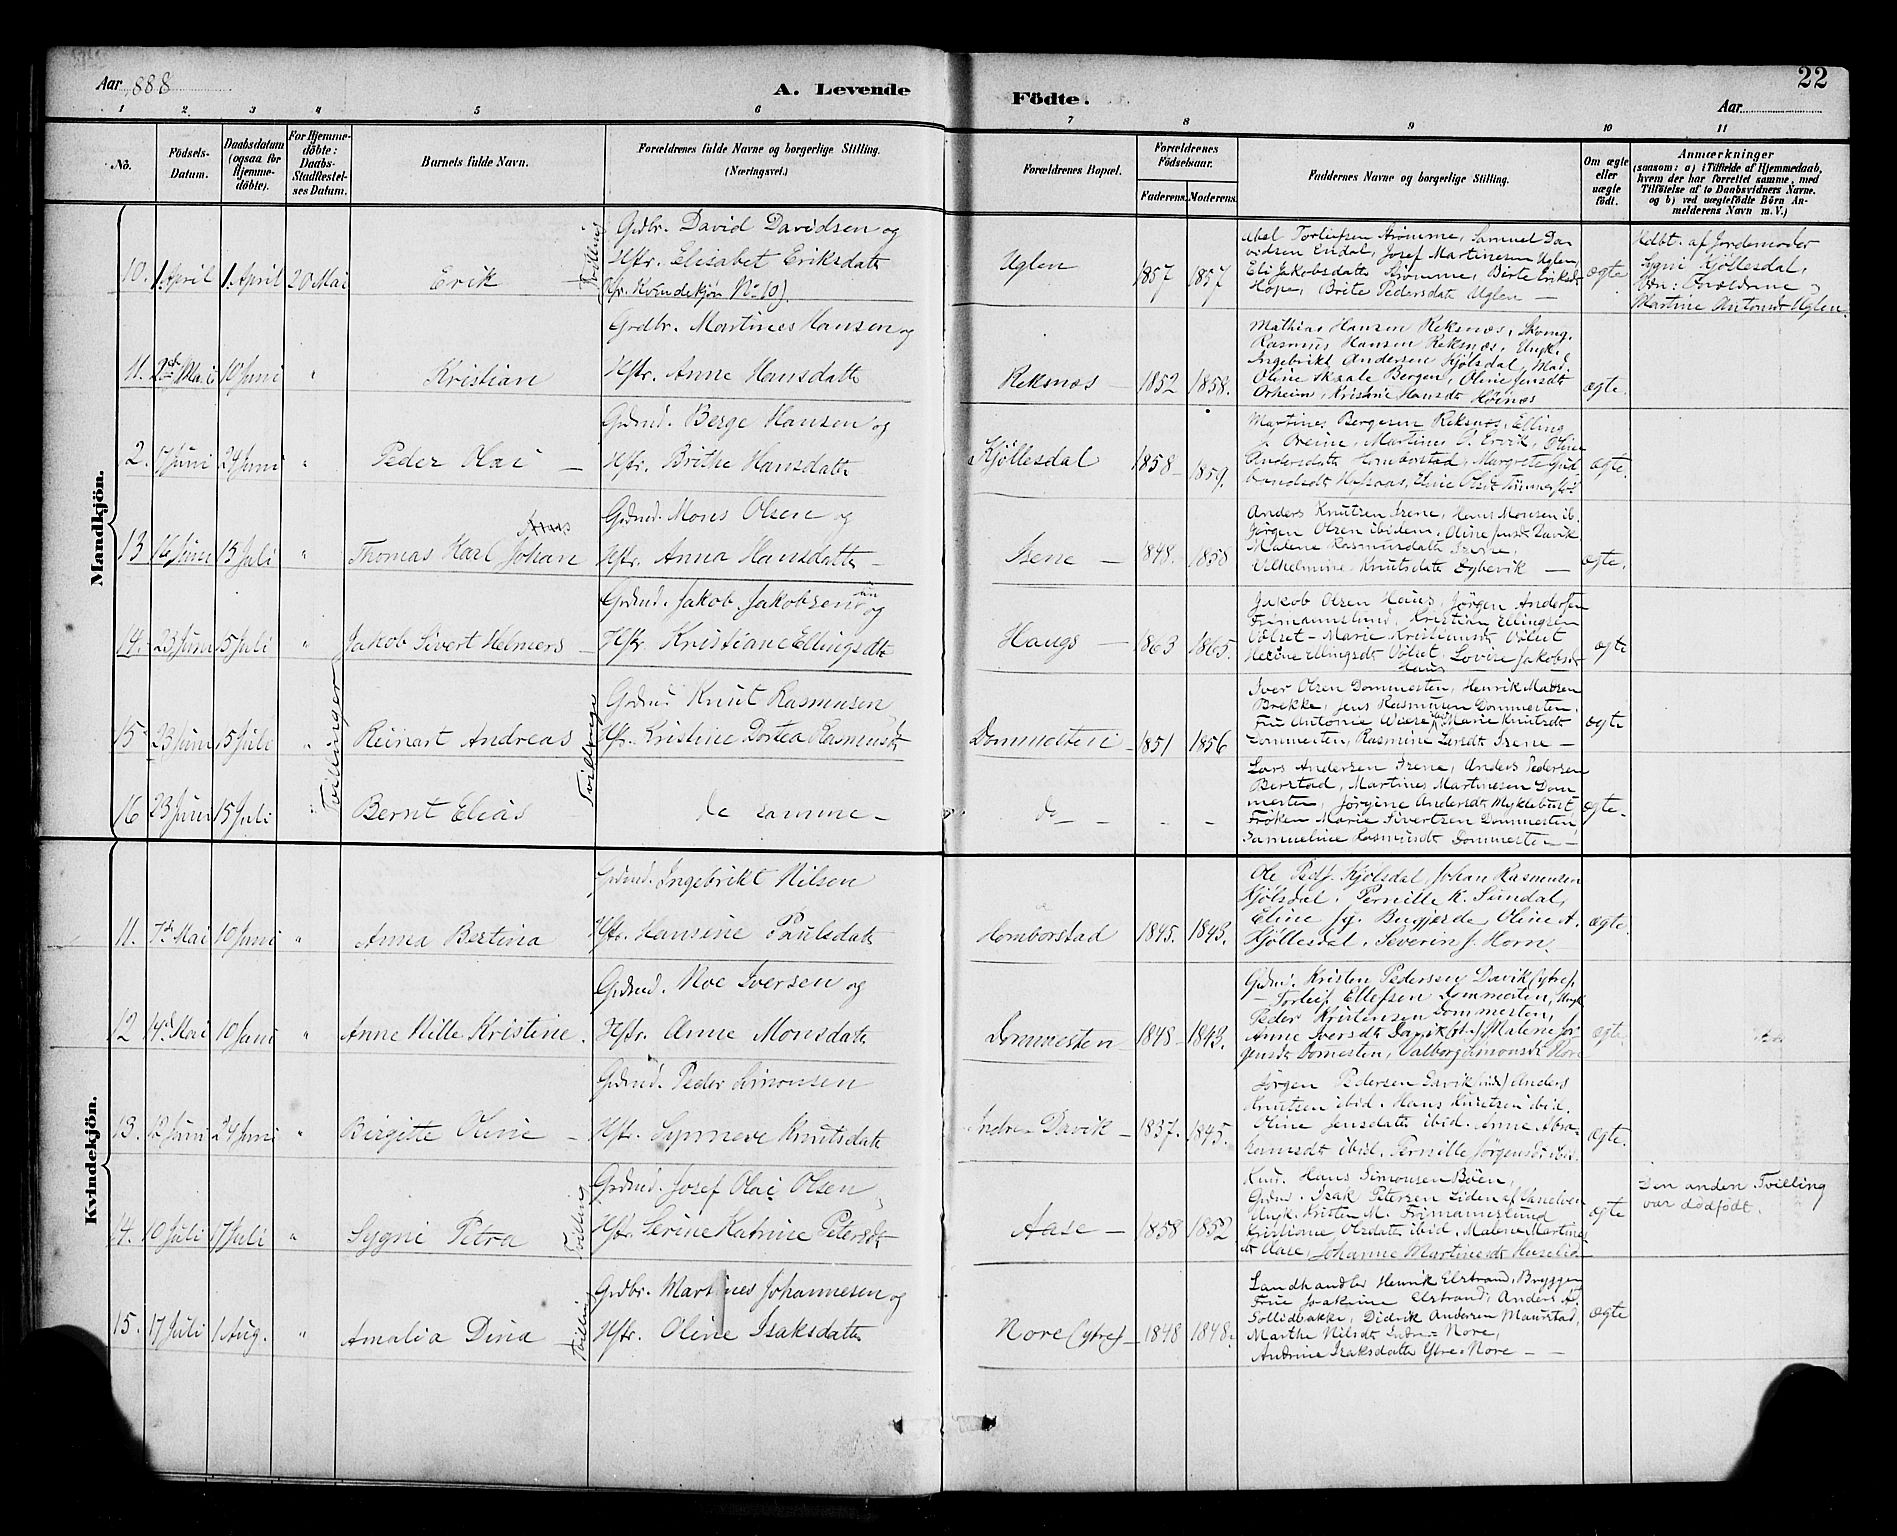 Aar 1888
A. Levende
Födte.
22
Aar
1 2. 3 4 5 6 7 8 9 10 11
No.
Födsels-Datum.
Daabsdatum (ogsaa for Hjemme-döbte).
For Hjemme-döbte: Daabs-Stadfæstel-ses Datum.
Barnets fulde Navn.
Forældrenes fulde Navne og borgerlige Stilling. (Næringsvei.)
Forældrenes Bopæl.
Forældrenes Födselsaar.
Faderens. Moderens.
Faddernes Navne og borgerlige Stilling.
Om ægte eller uægte födt.
Anmærkninger
(saasom: a) i Tilfælde af Hjemmedaab, hvem der har forrettet samme, med Tilföielse af to Daabsvidners Navne. og b) ved uægtefödte Börn An-melderens Navn m. V.)
Mandkjön.
10. 1 April 1. April 20 Mai Erik
Tvilling
Grdbr. David Davidsen og
Hstr. Elisabet Eriksdatt
(cfr. Kvindekjøn No 10).
Uglen 1857 1857
Abel Torleifsen Strømme, Samuel Da-
vidsen Endal, Josef Martinesen Uglen,
Eli Jakobsdatt Strømme, Birte Eriksdt
Hope, Brite Pedersdatt Uglen —
ægte
Hdbt. af Jordemoder
Sygni Kjöllesdal,
Vdn: Forældrene &
Martine Antonsdt Uglen.
11. 2den Mai 10 Juni " Kristian
Grdbr. Martines Hansen og
Hstr. Anne Hansdatt
Reksnæs — 1852 1858.
Mathias Hansen Reksnæs,
Rasmus Hansen Reksnæs, Ungk.
Ingebrikt Andersen Kjølsdal, Mad.
Oline Skaale Bergen, Oline Jensdt
Orheim, Kristine Hansdt Høinæs
ægte.
2. 7 Juni 24 Juni " Peder Olai —
Grdmd. Berge Hansen og
Hstr. Brithe Hansdatt
Kjöllesdal 1858 1859.
Martines Bergesen Reksnæs, Elling
J. Øreine, Martines P. Ervik, Oline
Andersdatt Homborstad, Margrete Gud-
ægte.
13 16 Juni 15 Juli " Thomas Karl Johan
Grdmd. Mons Olsen og
Hstr. Anna Hansdatt —
Isene — 1848. 1850
Anders Knutsen Isene, Hans Monsen ib.
Jørgen Olsen ibidem, Oline Jensdt Davik
Malene Rasmusdatt Isene,
Vilhelmine Knutsdatt Egbevik —
ægte.
14. 23 Juni 15 Juli " Jakob Sivert Helmers —
Grdmd. Jakob Jakobsen og
Hstr. Kristiane Ellingsdt
Haugs — 1863 1865.
Jakob Olsen Haus, Jørgen Andersen
Frimannslund, Kristian Ellingsen
Vølset — Marie Kristiansdt Vølset
Helene Ellingsdt Vølset, Lovise Jakobsdt
Haus
ægte
Tvillinger
15 23 Juni 15 Juli " Reinart Andreas
Grdmd. Knut Rasmussen
Hstr. Kristine Dortea Rasmusdt
Dommesteni 1851 1856
Iver Olsen Dommesten, Henrik Madsen
Brekke, Jens Rasmusen Dommesten.
Fru Antonie Wiese, Marie Knutsdt
Dommesten, Rasmine Larsdt Isene —
ægte
16 23 Juni 15 Juli " Bernt Elias
de samme —
do — - - -
Lars Andersen Isene, Anders Pedersen
Berstad, Martines Martinesen Dom-
mesten, Jørgine Andersdt Myklebust
Frøken Marie Sivertsen Dommesten,
Sammeline Rasmusdt Dommesten —
ægte
Kvindekjön.
11. 7de Mai 10 Juni " Anna Bertina
Grdmd. Ingebrikt Nilsen
Hstr. Hansine Paulsdatt
Homborstad 1845. 1843.
Ole Peds. Kjølsdal, Johan Rasmusen
Kjølsdal, Pernille K. Sundal,
Eline Bugjerde, Oline A.
Kjöllesdal, Severin J. Horn.
ægte.
12 14de Mai 10 Juni " Anne Hille Kristine.
Grdmd. Noe Iversen og
Hstr. Anne Monsdatt
Dommesten 1848 1843.
Grdmd. Kristen Pedersen Davik (ytre),
— Torleif Ellefsen Dommesten, Ungk
Peder Kristensen Dommesten,
Anne Iversdt Davik, Malene Jør-
gensdt Domesten, Valborg Simonsdt Nore
ægte.
13. 12 Juni 24 Juni " Birgitte Oline —
Grdmd. Peder Simonsen
Hstr. Synneve Knutsdatt
Indre Davik — 1837. 1845.
Jørgen Pedersen Davik (indr) Anders
Knutsen ibid. Hans Knutsen ibid.
Oline Jensdatt ibid. Anne Abra-
hamsdt ibid. Pernille Jørgensdt ibid.
ægte.
14. 10 Juli 17 Juli " Sygni Petra
Tvilling
Grdmd. Josef Olai Olsen
Hstr. Serine Katrine Petersdt
Aase — 1858 1852
Hans Simonsen Bøen,
Grdmd. Isak Petersen Liden af
Ungk. Kristen M. Frimannslund
Kristiane Olsdatt ibid, Malene Martines-
dt Aase, Johanne Martinesdt
ægte
Den anden Tvilling
var dødfødt.
15. 17 Juli 1 Aug. " Amalia Dina —
Tvilling
Grdbr. Martines Johannesen og
Hstr. Oline Isaksdatt
Nore (ytre) — 1848 1848.
Landhandler Henrik Elstrand, Bryggen
Frue Joakime Elstrand, Anders A.
Sollidbakke, Didrik Andersen Maurstad,
Marthe Nilsdt Indre = Nore,
Andrine Isaksdatt Ytre = Nore —
ægte